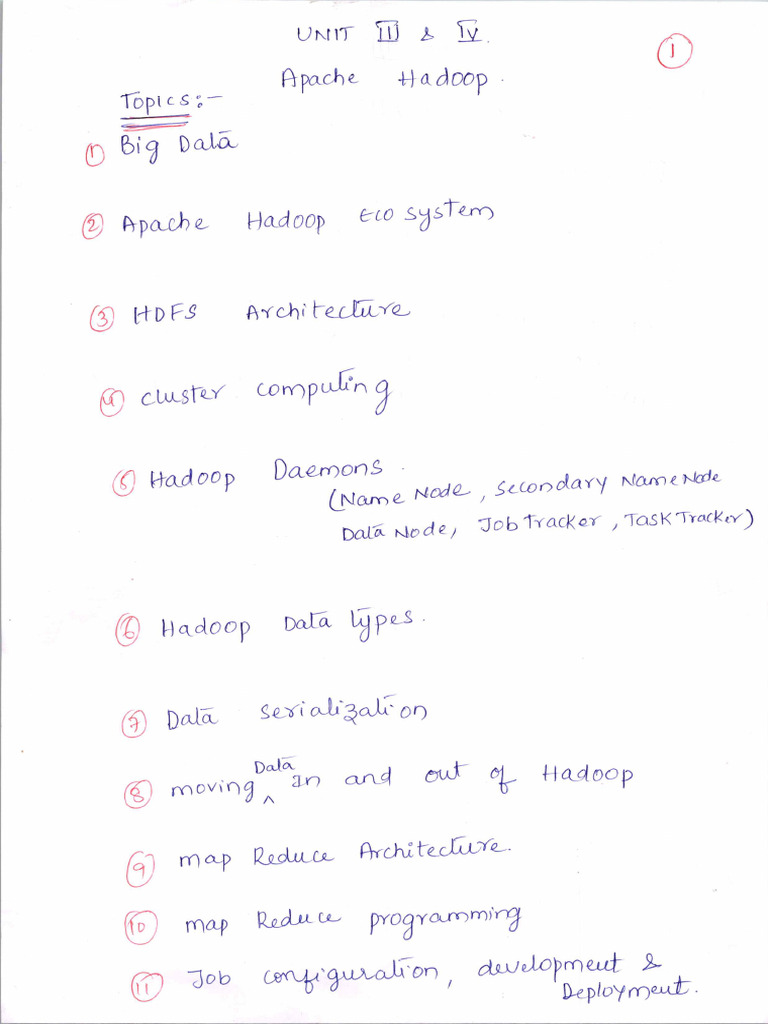 UNIT III & IV.
1
Apache Hadoop.
Topics:-
1 Big Data
2 Apache Hadoop Eco system
3 HDFS Architecture
4 cluster computing
5 Hadoop Daemons.
(Name Node, secondary NameNode
Data Node, Job Tracker, Task Tracker)
6 Hadoop Data types.
7 Data serialization
8 moving Data In and out of Hadoop
9 map Reduce Architecture.
10 map Reduce programming
11 Job configuration, development &
Deployment.